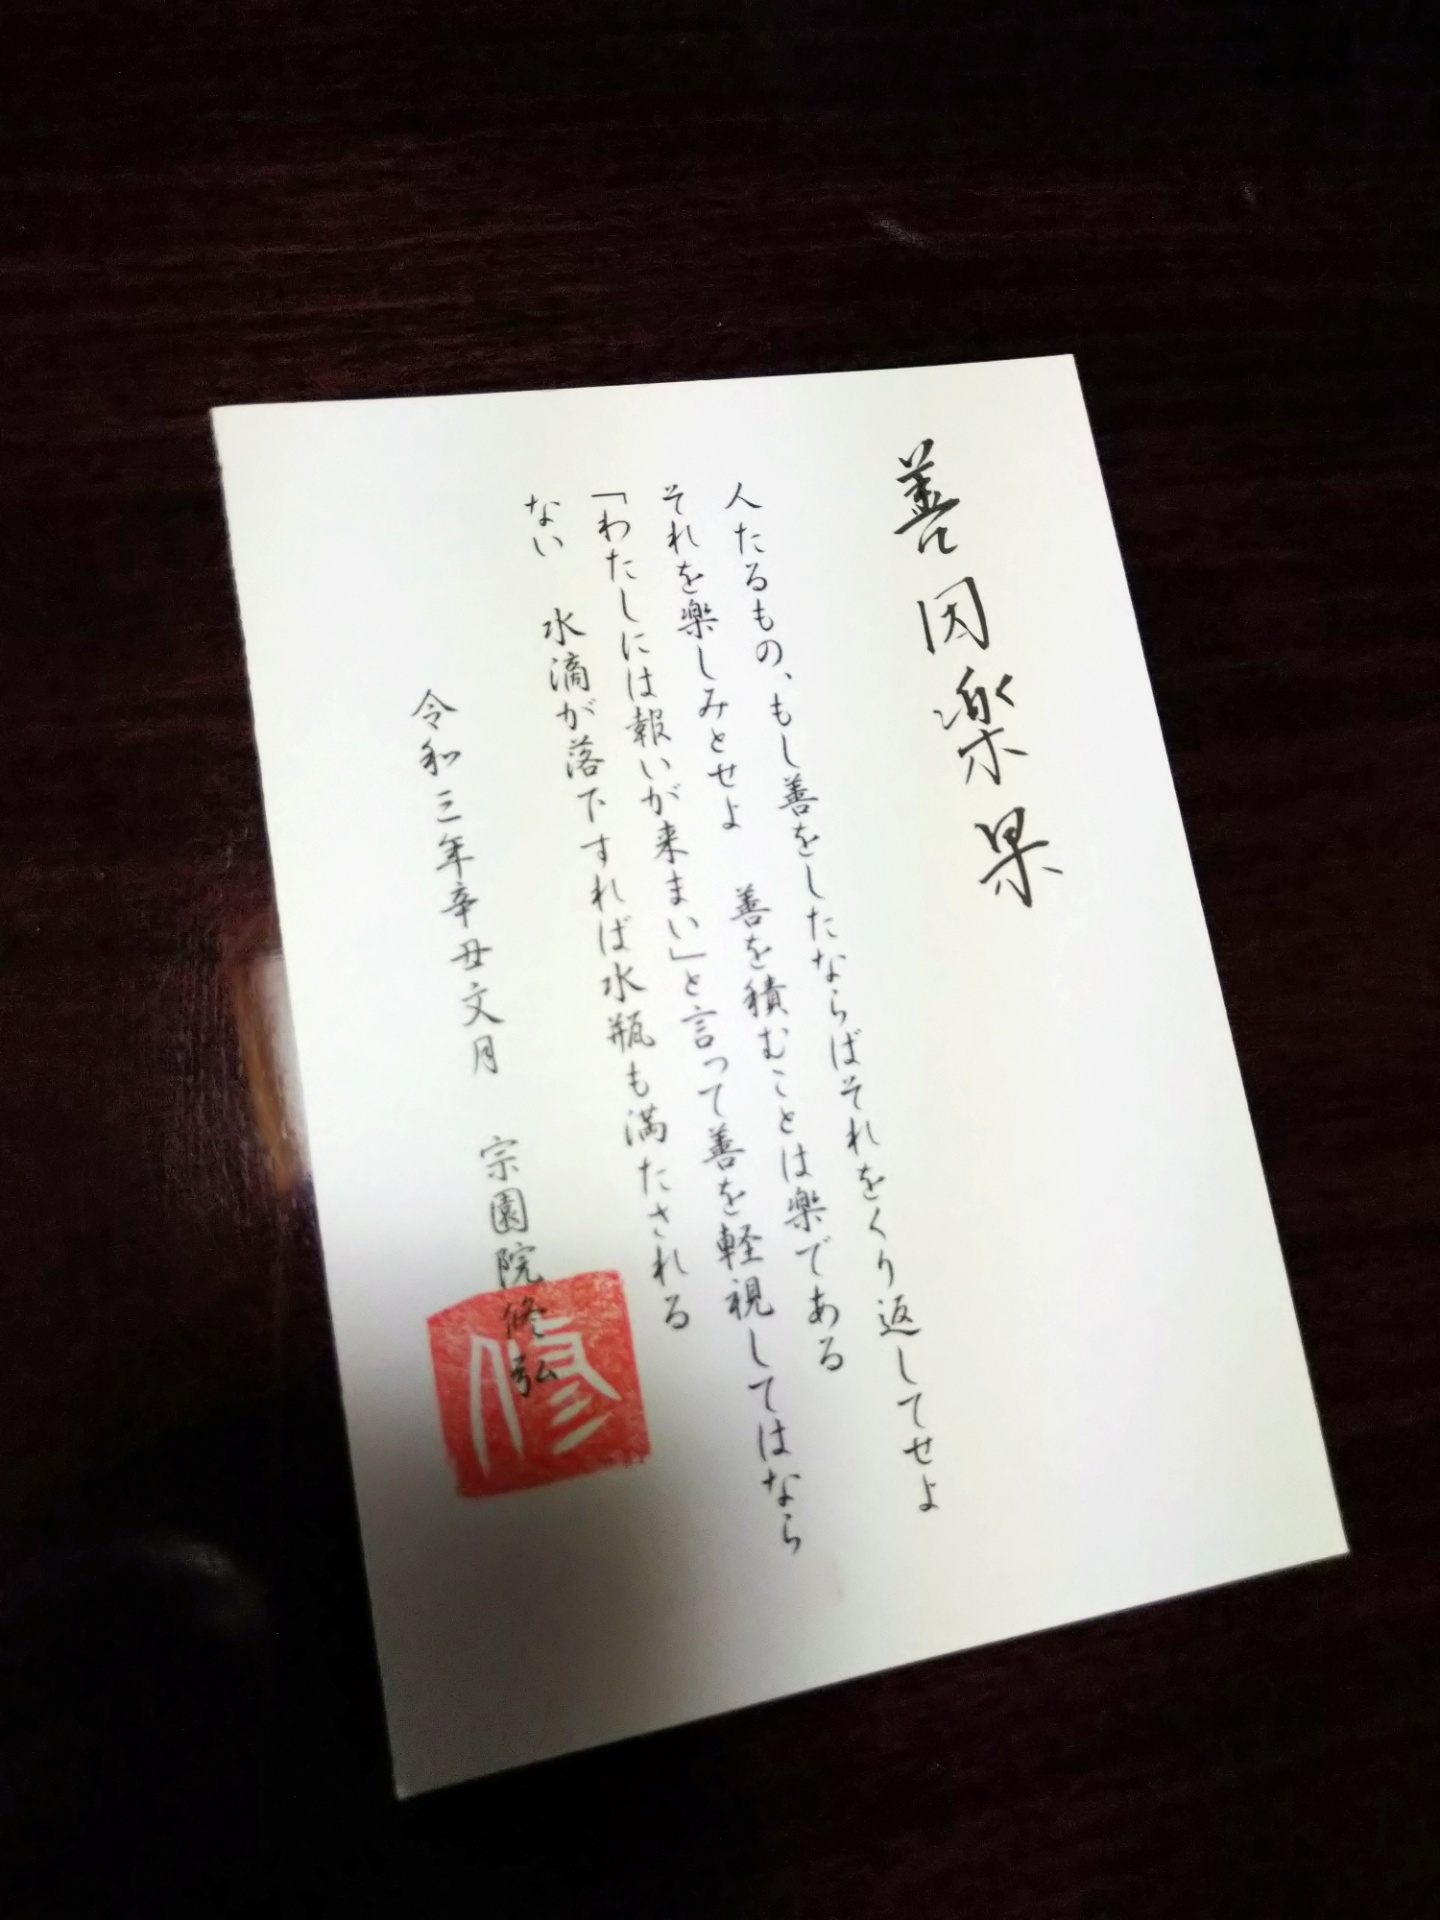 善因楽果
人たるもの、もし善をしたならばそれをくり返してせよ
それを楽しみとせよ　善を積むことは楽である
「わたしには報いが来まい」と言って善を軽視してはなら
ない　水滴が落下すれば水瓶も満たされる
令和三年辛丑文月　宗園院修弘
修